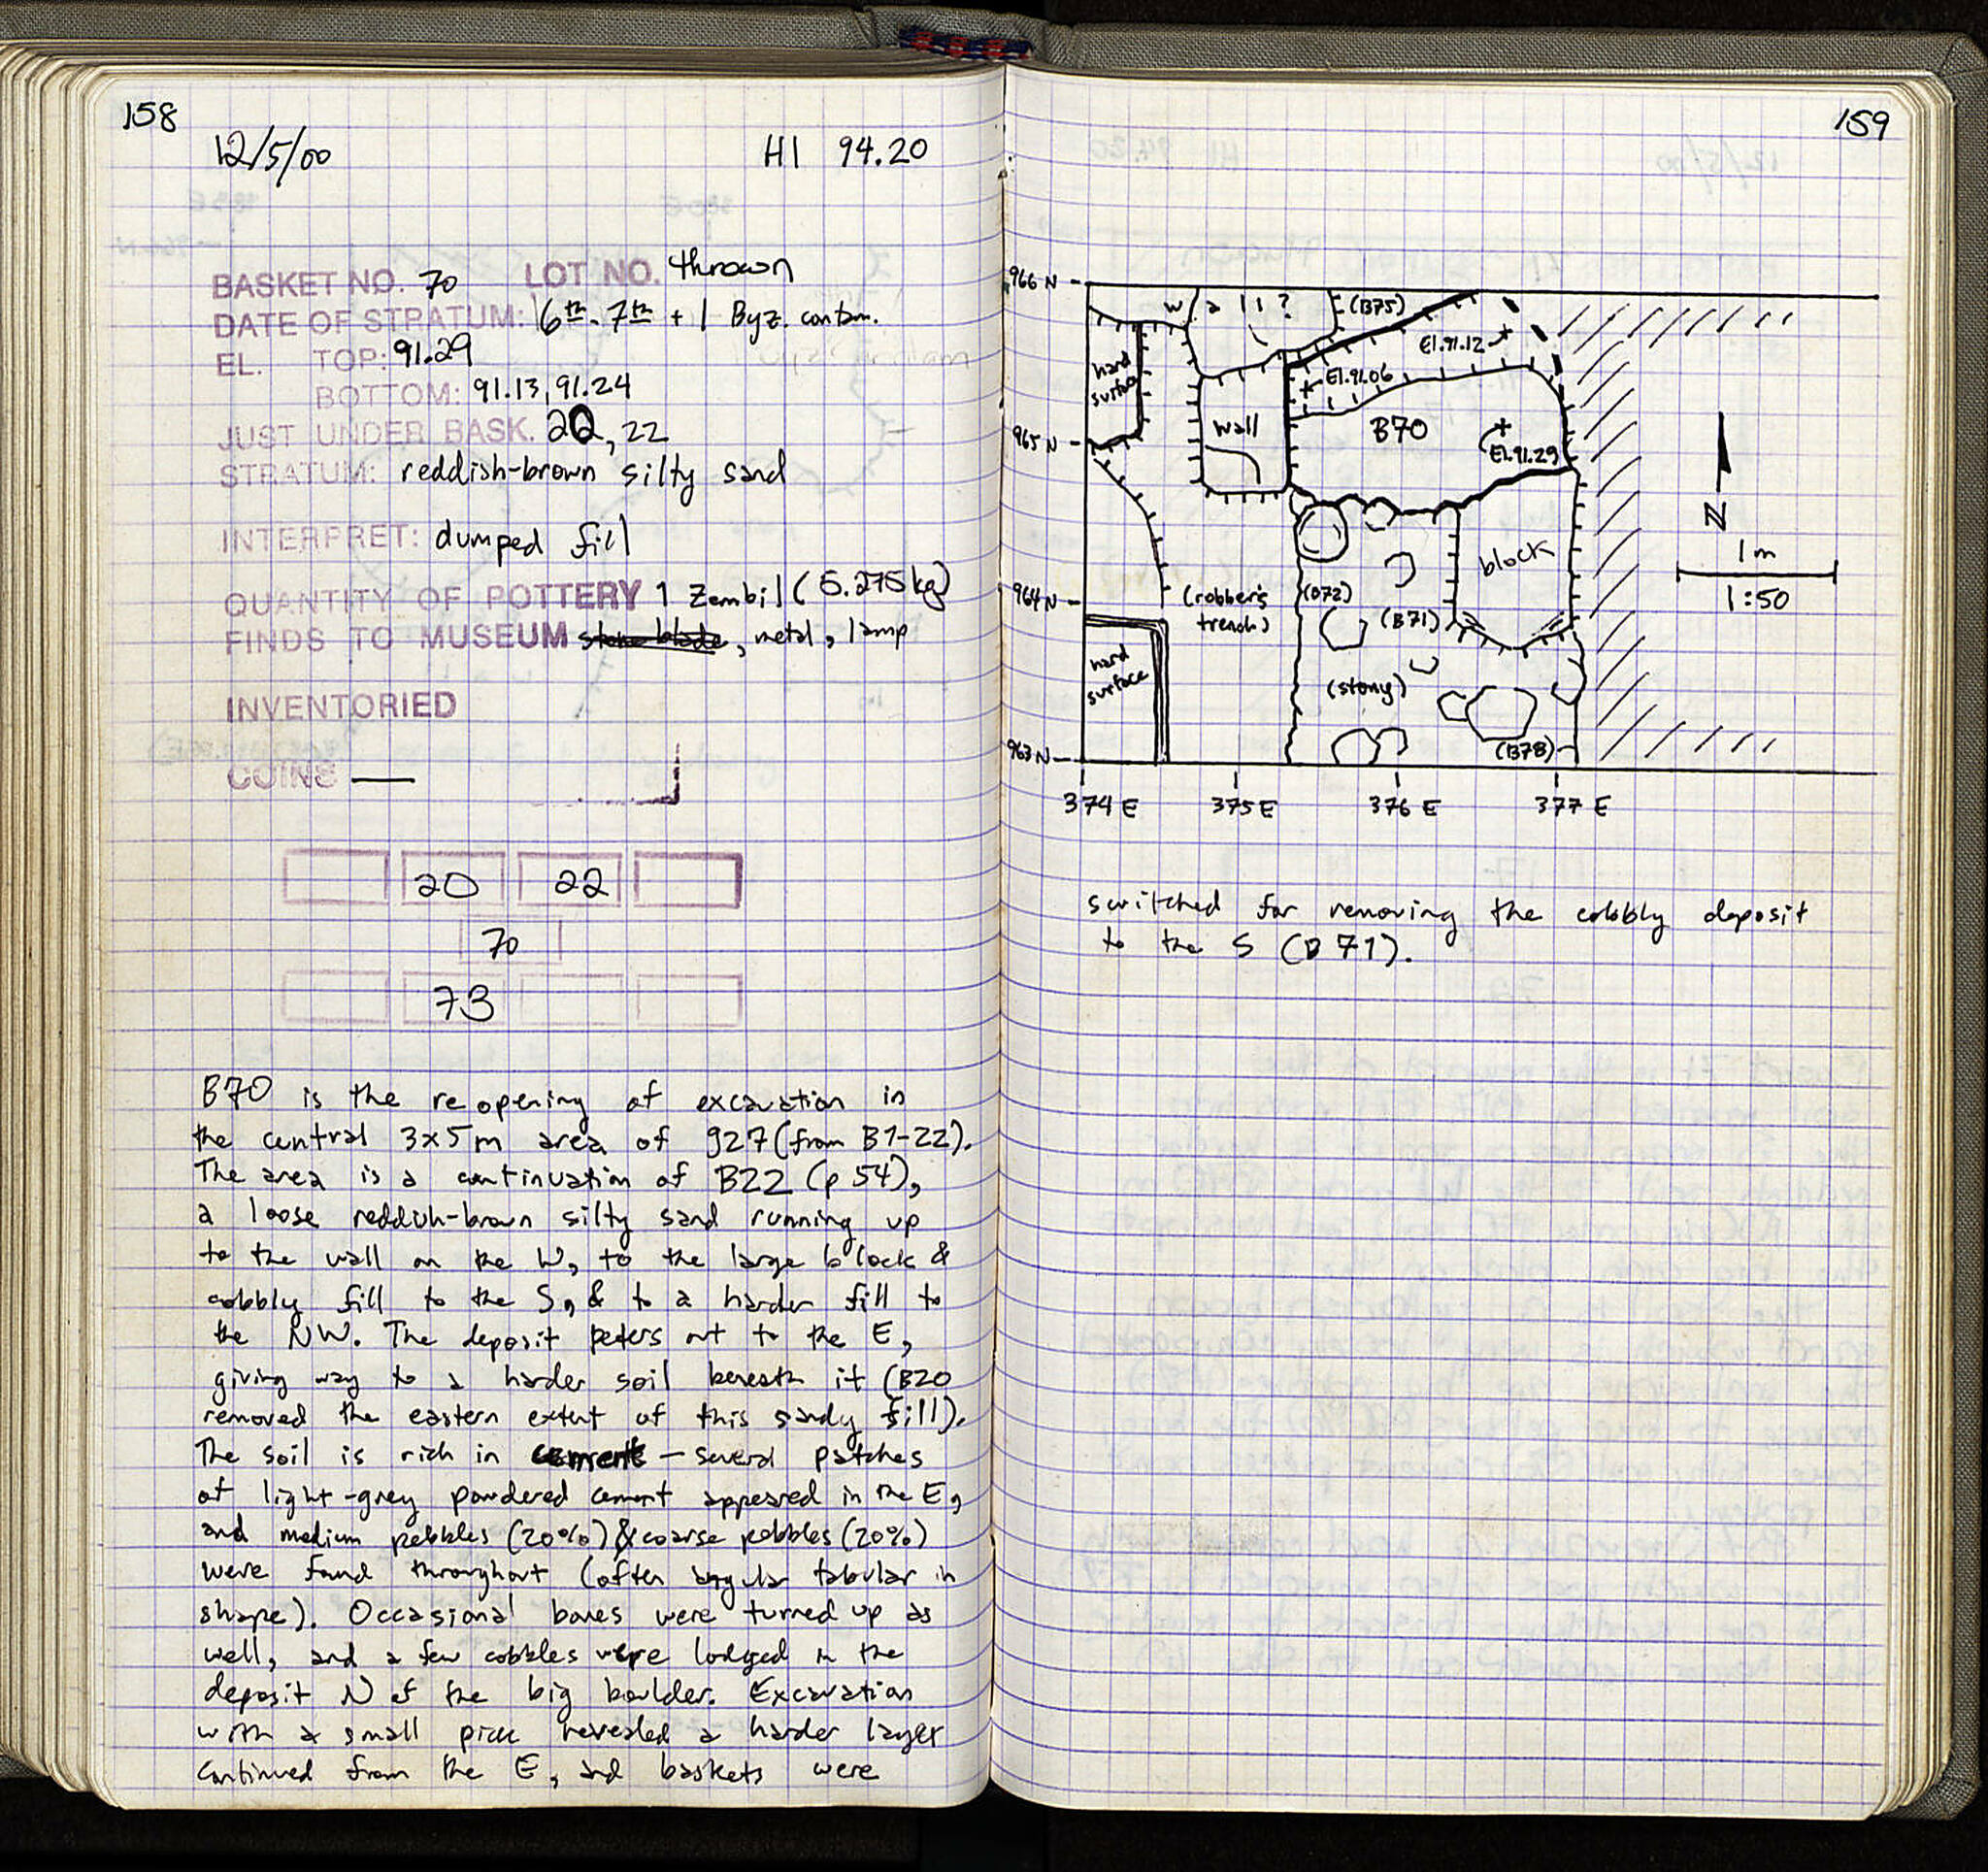 158
12/5/00 HI 94.20
BASKET NO. 70 LOT NO. thrown
DATE OF STRATUM: 6th-7th + 1 Byz. contam.
EL. TOP: 91.29
BOTTOM: 91.13, 91.24
JUST UNDER BASK. 20, 22
STRATUM: reddish-brown silty sand
INTERPRET: dumped fill
QUANTITY OF POTTERY 1 Zembil (5.275 kg)
FINDS TO MUSEUM stone blade, metal, lamp
INVENTORIED
COINS —
20 22
70
73
B70 is the reopening of excavation in
the central 3x5 m area of 927 (from B1-22).
The area is a continuation of B22 (p 54),
a loose reddish-brown silty sand running up
to the wall on the W, to the large block &
cobbly fill to the S, & to a harder fill to
the NW. The deposit peters out to the E,
giving way to a harder soil beneath it (B20
removed the eastern extent of this sandy fill).
The soil is rich in cement – several patches
of light-grey powdered cement appeared in the E,
and medium pebbles (20%) & coarse pebbles (20%)
were found throughout (often angular tabular in
shape). Occasional bones were turned up as
well, and a few cobbles were lodged in the
deposit N of the big boulder. Excavation
with a small pick revealed a harder layer
continued from the E, and baskets were
159
966 N
wall? (B75)
El. 91.12
hard surface
El. 91.06
965 N
wall
B70
El. 91.29
N
block
1 m
964 N
(robber's trench)
(B72)
(B71)
1:50
hard surface
(stony)
963 N
(B78)
374 E 375 E 376 E 377 E
switched for removing the cobbly deposit
to the S (B 71).